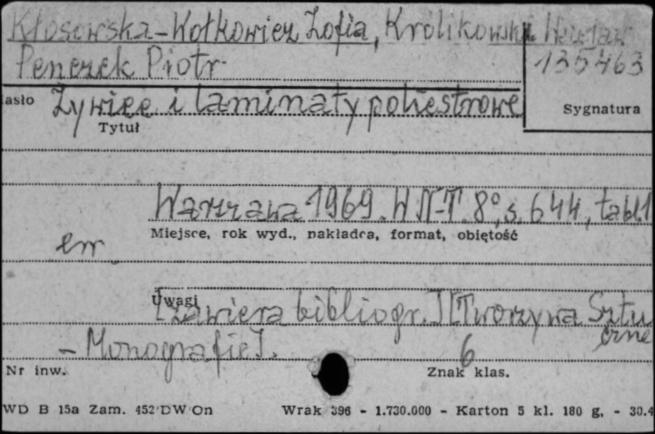 Kłosowska-Wołkowicz Zofia, Królikowski Wacław
Penczek Piotr
135463
asło Żywice i laminaty poliestrowe
Tytuł
Sygnatura
Warszawa 1969. WN-T. 8°, s. 644, tabl. 1
Miejsce, rok wyd., nakładca, format, objętość
Uwagi
[Zawiera bibliogr.] [Tworzywa Sztu
czne
- Monografie].
6
Nr inw.
Znak klas.
WD B 15a Zam. 452/DW/On Wrak 396 - 1.730.000 - Karton 5 kl. 180 g. - 30.4